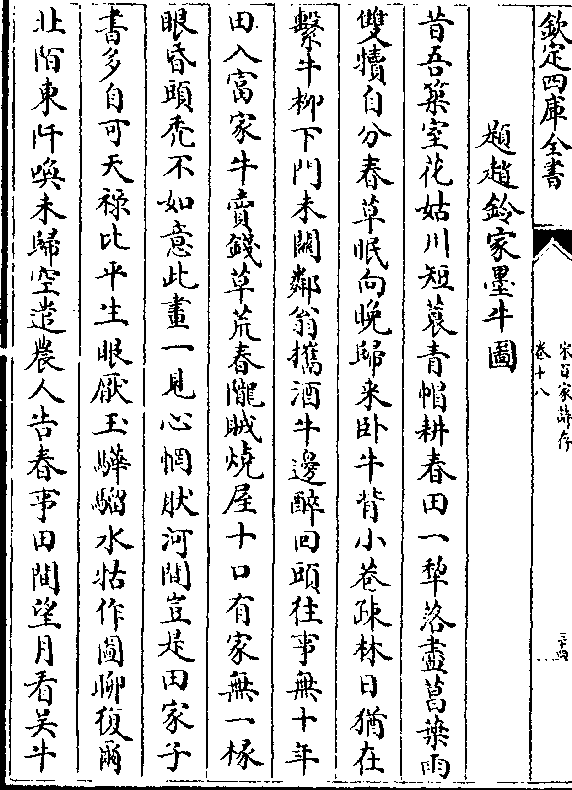 欽定四庫全書
宋百家詩存
卷十八
三十四
題趙鈴家墨牛圖
昔吾築室花姑川短蓑青帽耕春田一犂落盡菖葉雨
雙犢自分春草眠向晚歸来卧牛背小巷疎林日猶在
繫牛柳下門未關鄰翁攜酒牛邊醉回頭往事無十年
田入富家牛賣錢草荒春隴賊燒屋十口有家無一椽
眼昏頭禿不如意此畫一見心惘然河間豈是田家子
書多自可天祿比平生眼厭玉驊騮水牯作圖聊復爾
北陌東阡喚未歸空遣農人告春事田間望月看吴牛